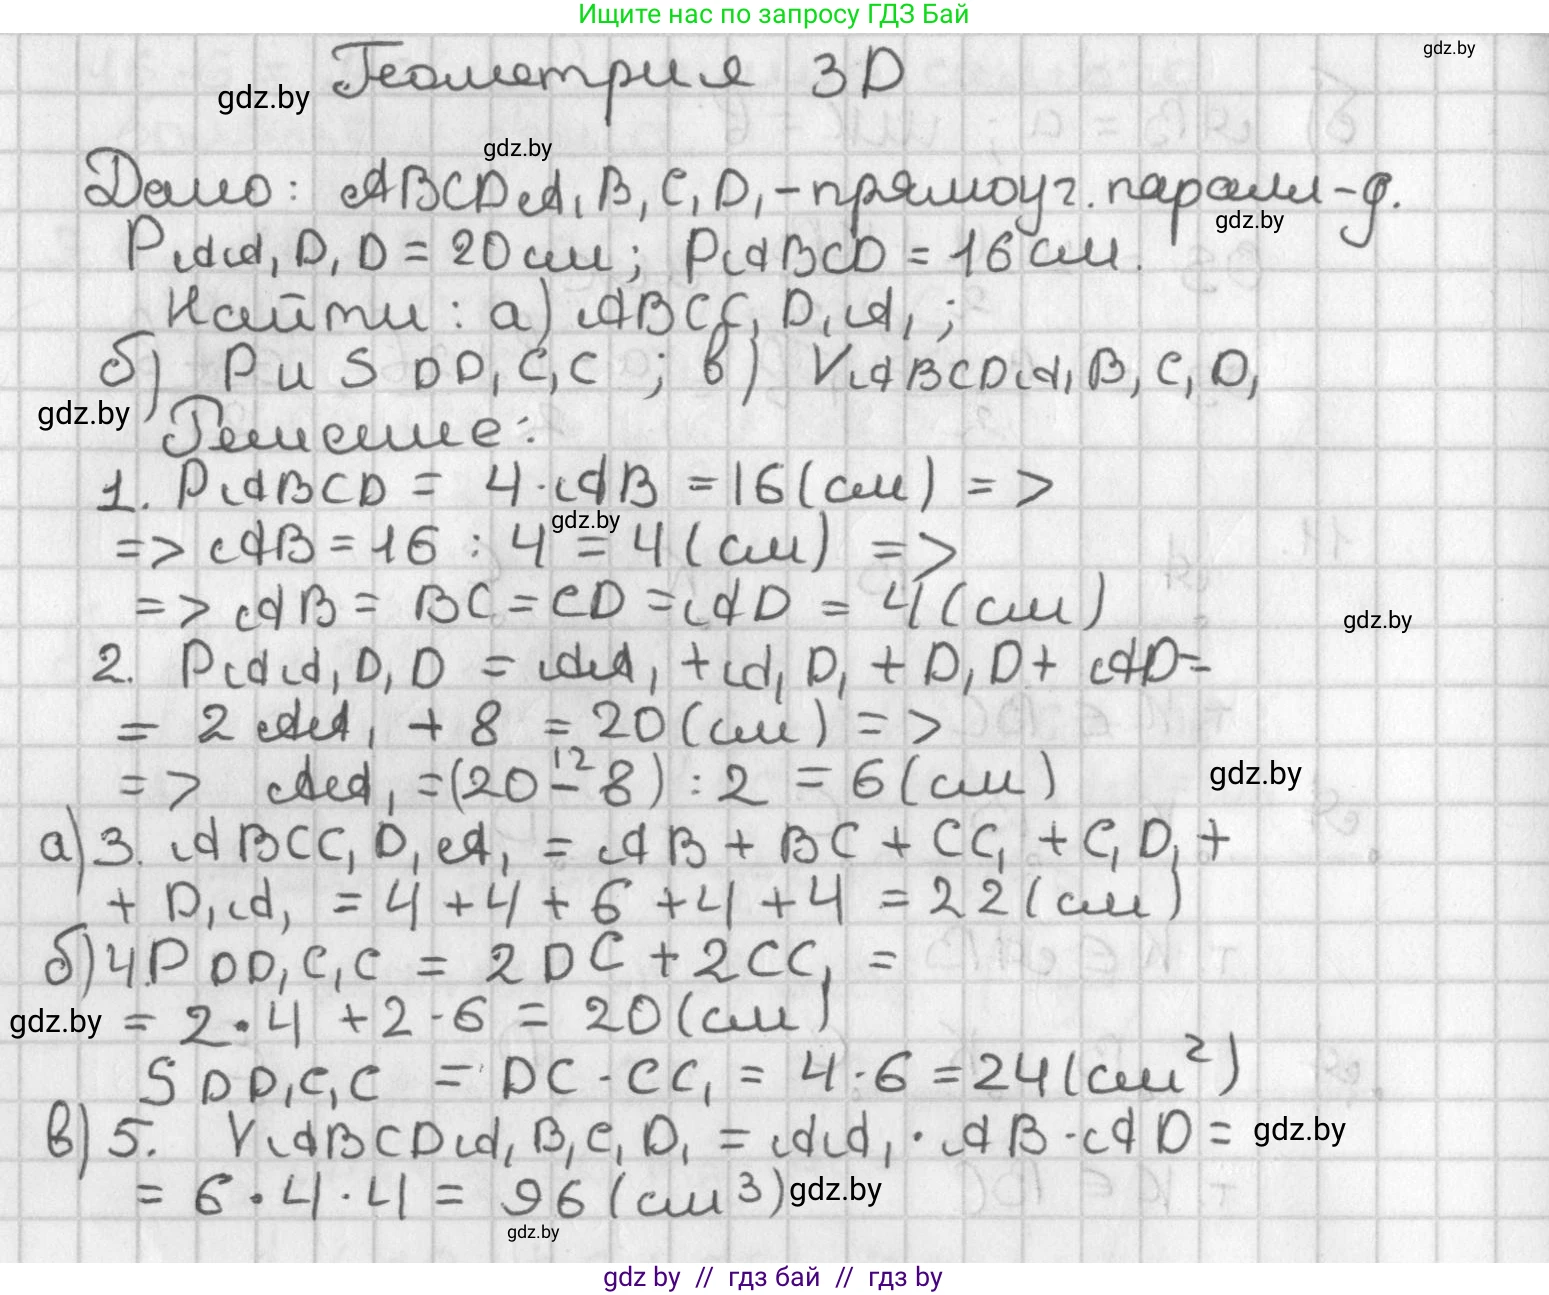 Ищите нас по запросу ГДЗ Бай
gdz.by
Геометрия 3D
gdz.by
gdz.by
Дано: ABCDA₁B₁C₁D₁ - прямоуг. паралл-д.
gdz.by
PAA₁D₁D = 20 см; PABCD = 16 см.
Найти: а) ABCC₁D₁A₁;
б) P и S DD₁C₁C; в) VABCDA₁B₁C₁D₁
gdz.by
Решение:
1. PABCD = 4·AB = 16 (см) =>
gdz.by
=> AB = 16 : 4 = 4 (см) =>
=> AB = BC = CD = AD = 4 (см)
gdz.by
2. PAA₁D₁D = AA₁ + A₁D₁ + D₁D + AD =
= 2AA₁ + 8 = 20 (см) =>
12
=> AA₁ = (20 - 8) : 2 = 6 (см)
gdz.by
а) 3. ABCC₁D₁A₁ = AB + BC + CC₁ + C₁D₁ +
+ D₁A₁ = 4 + 4 + 6 + 4 + 4 = 22 (см)
б) 4. P DD₁C₁C = 2DC + 2CC₁ =
gdz.by
= 2·4 + 2·6 = 20 (см)
S DD₁C₁C = DC·CC₁ = 4·6 = 24 (см²)
в) 5. VABCDA₁B₁C₁D₁ = AA₁·AB·AD =
gdz.by
= 6·4·4 = 96 (см³)
gdz.by
gdz.by
gdz by // гдз бай // гдз by